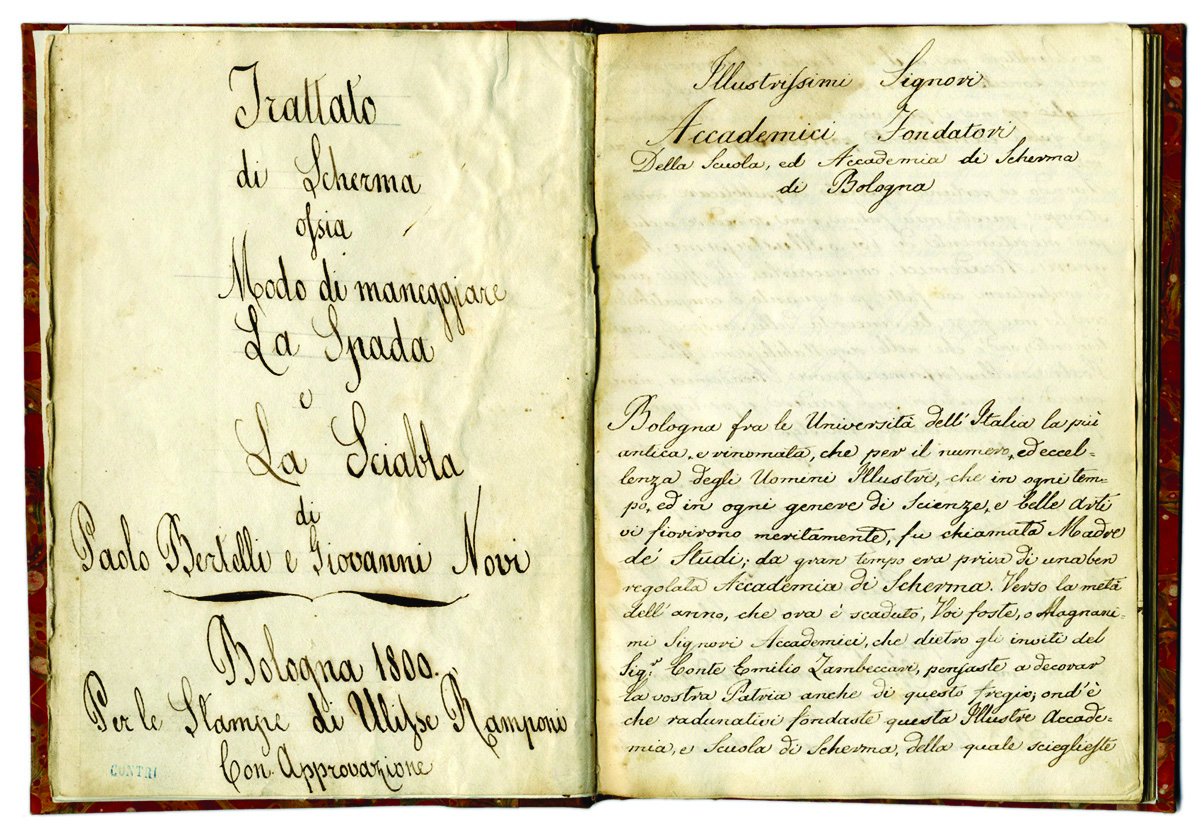 Trattato
di Scherma
ossia
Modo di maneggiare
La Spada
e
La Sciabla
di
Paolo Bertelli e Giovanni Novi
Bologna 1800.
Per le Stampe di Ulisse Ramponi
Con Approvazione
CONTRI
Illustrissimi Signori
Accademici Fondatori
Della Scuola, ed Accademia di Scherma
di Bologna
Bologna fra le Università dell'Italia la più
antica, e rinomata, che per il numero, ed eccel-
lenza degli Uomini Illustri, che in ogni tem-
po, ed in ogni genere di Scienze, e belle Arti
vi fiorirono meritamente, fu chiamata Madre
de' Studi; da gran tempo era priva di una ben
regolata Accademia di Scherma. Verso la metà
dell'anno, che ora è scaduto, Voi foste, o Magnani-
mi Signori Accademici, che dietro gli inviti del
Sig.r Conte Emilio Zambeccari, pensaste a decorar
la vostra Patria anche di questo fregio; ond'è
che radunativi fondaste questa Illustre Accade-
mia, e Scuola di Scherma, della quale sciegliefte